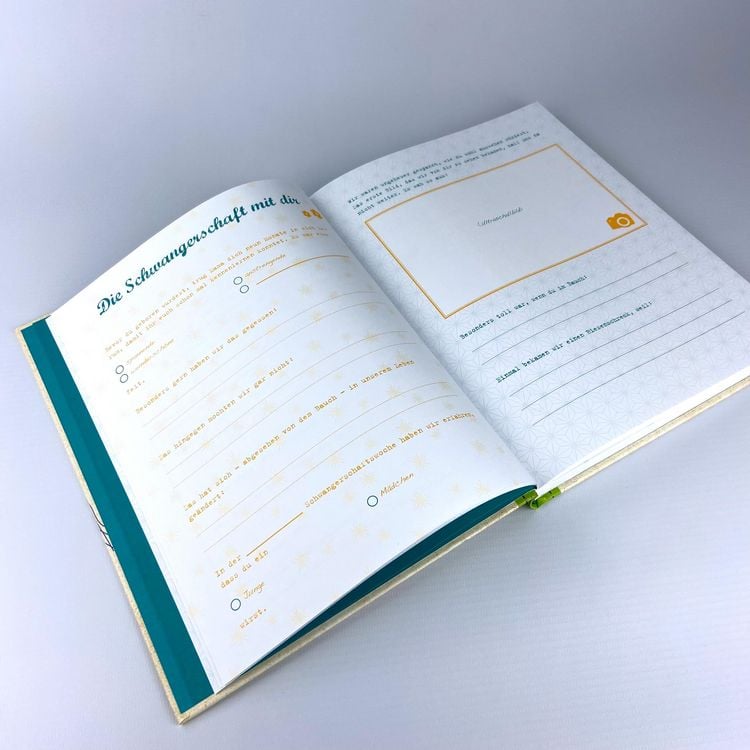 Die Schwangerschaft mit dir
Bevor du geboren wurdest, trug Mama dich neun Monate in sich
damit ihr euch schon mal kennenlernen konntet. Es war eine
anstrengende
spannende
wunderschöne
Zeit.
Besonders gern haben wir da gegessen:
Das hingegen mochten wir gar nicht:
Das hat sich – abgesehen von dem Bauch – in unserem Leben
geändert:
In der Schwangerschaftswoche haben wir erfahren,
dass du ein
Mädchen
Junge
wirst.
Wir waren ungeheuer gespannt, wie du wohl aussehen würdest.
Das erste Bild, das wir von dir zu sehen bekamen, ließ uns da
nicht weiter. Es sah so aus:
Ultraschallbild
Besonders toll war, wenn du im Bauch:
Einmal bekamen wir einen Riesenschreck, weil: